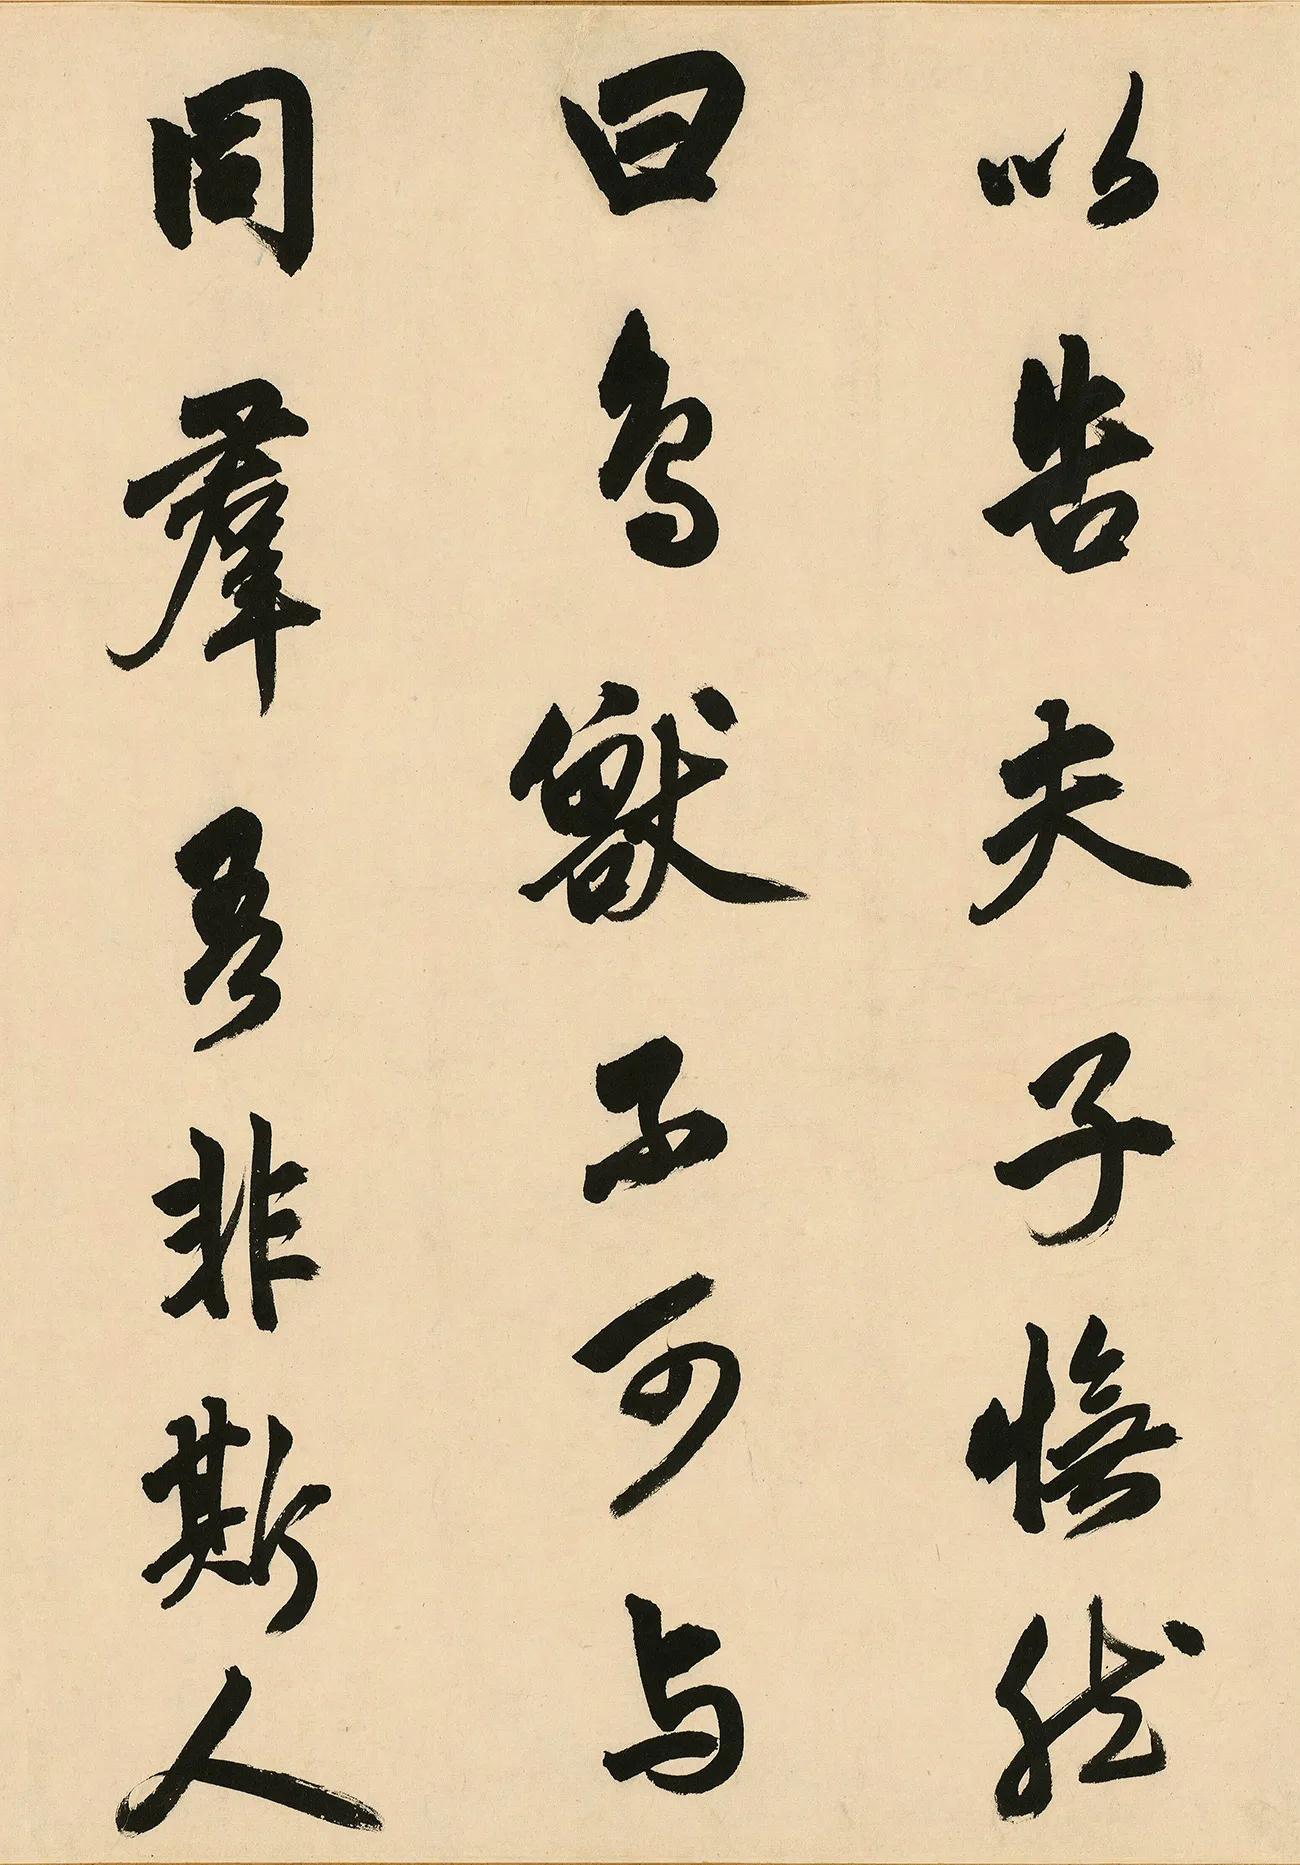 以告夫子憮然
曰鳥獸不可与
同羣吾非斯人